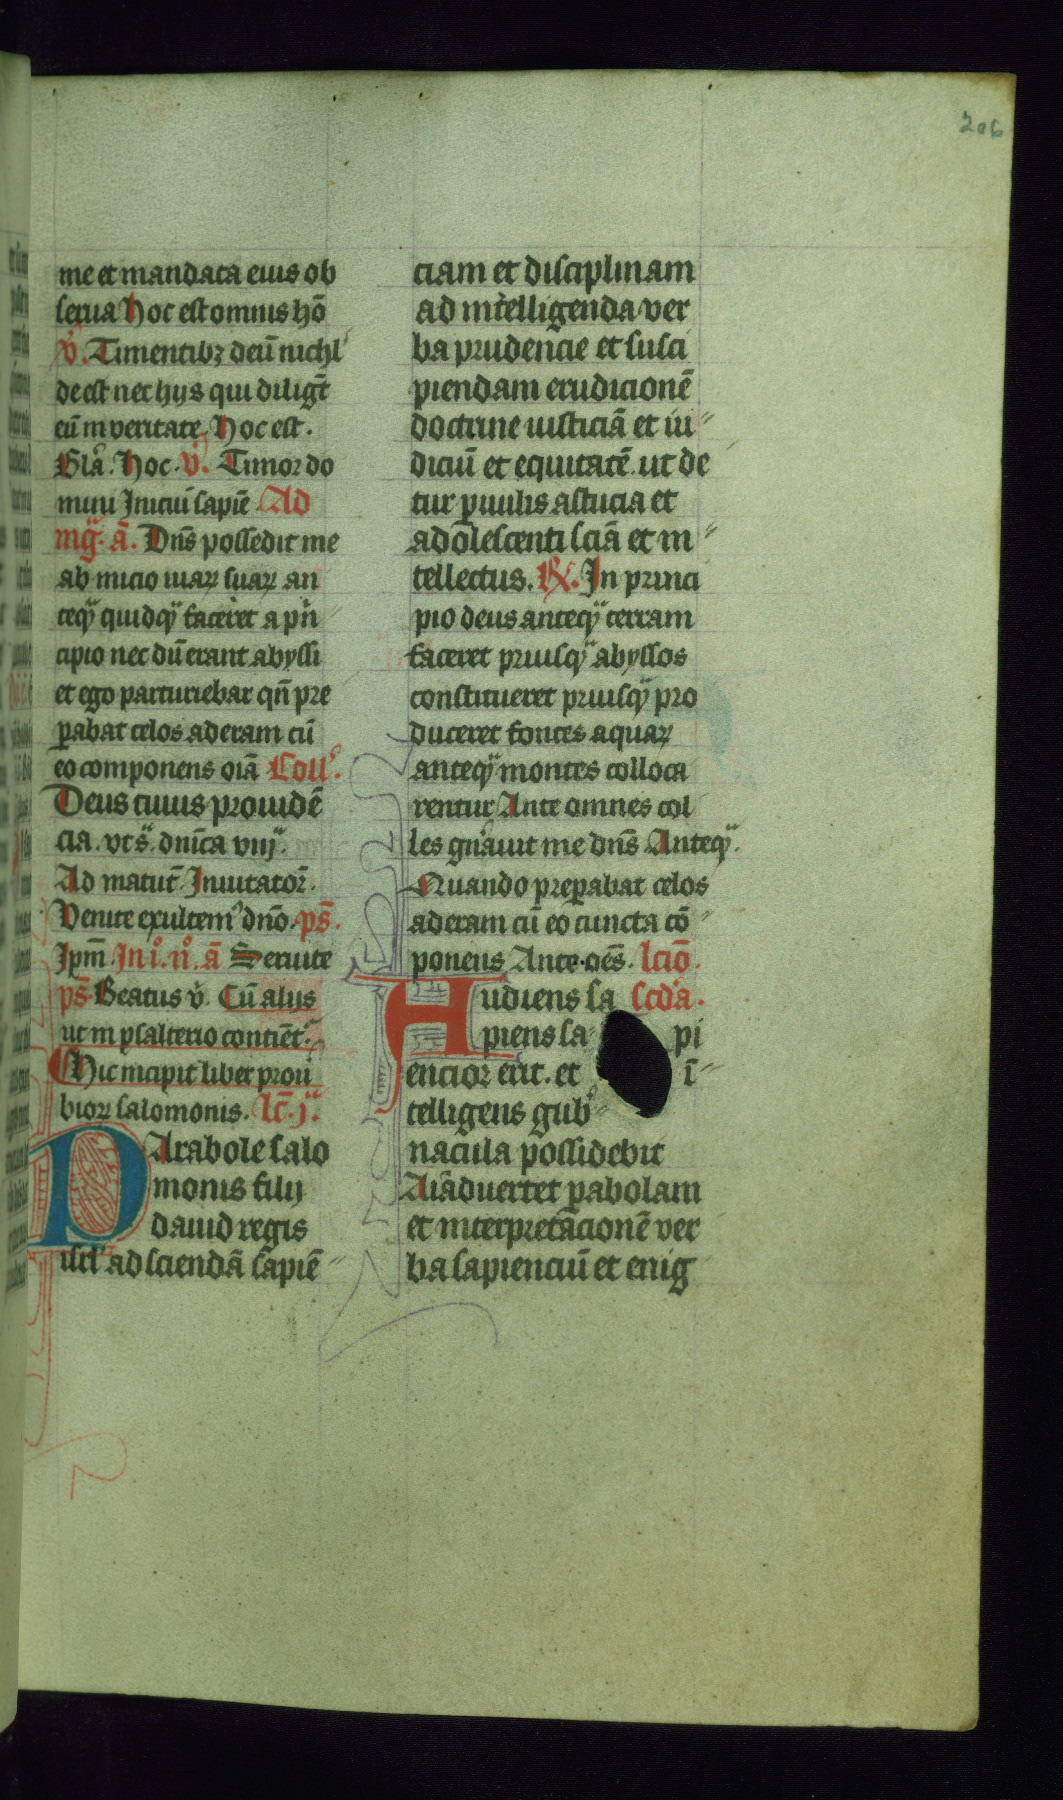 206
me et mandata eius ob
serua Hoc est omnis hō
v̄. Timentibꝫ deū nichl
de est nec hijs qui diligt̄
eū in veritate Hoc est.
Glā. Hoc. v̄. Timor do
mini Iniciū sapiē Ad
mḡ. ā. Dn̄s possedit me
ab inicio uiaꝝ suaꝝ an
teqͣ quidqͣ faceret a p̄n
cipio nec dū erant abyssi
et ego parturiebar qn̄ pre
ꝑabat celos aderam cū
eo componens oīa Coll͛.
Deus cuius prouidē
cia. vt sͣ. dn̄ica viijͣ.
Ad matut̄ Inuitator̄.
Venite exultemꝰ dn̄o. ps̄.
Ipm̄. In i.º n.º ā Seruite
ps̄ Beatus v̄. Cū alijs
ut in psalterio contiēt͛.
Hic incipit liber prou
bioꝝ salomonis. lc̄. jͣ.
PArabole salo
monis filij
dauid regis
isrl̄ ad sciendā sapiē
ciam et disciplinam
ad intelligenda ver
ba prudencie et susci
piendam erudicionē
doctrine iusticiā et iu
diciū et equitatē. ut de
tur ꝑuulis astucia et
adōlescenti sciā et in
tellectus. R̄. In princi
pio deus anteqͣ terram
faceret priusqͣ abyssos
constitueret priusqͣ pro
duceret fontes aquaꝝ
anteqͣ montes colloca
rentur Ante omnes col
les gn̄auit me dn̄s Anteqͣ.
Quando preꝑabat celos
aderam cū eo cuncta cō
ponens Ante. oēs. lcīo.
AUdiens sa scd̄a.
piens sa pi
encior erit. et ī
telligens gub͛
nacula possidebit
Aīaduertet ꝑabolam
et interpretācionē ver
ba sapienciū et enig